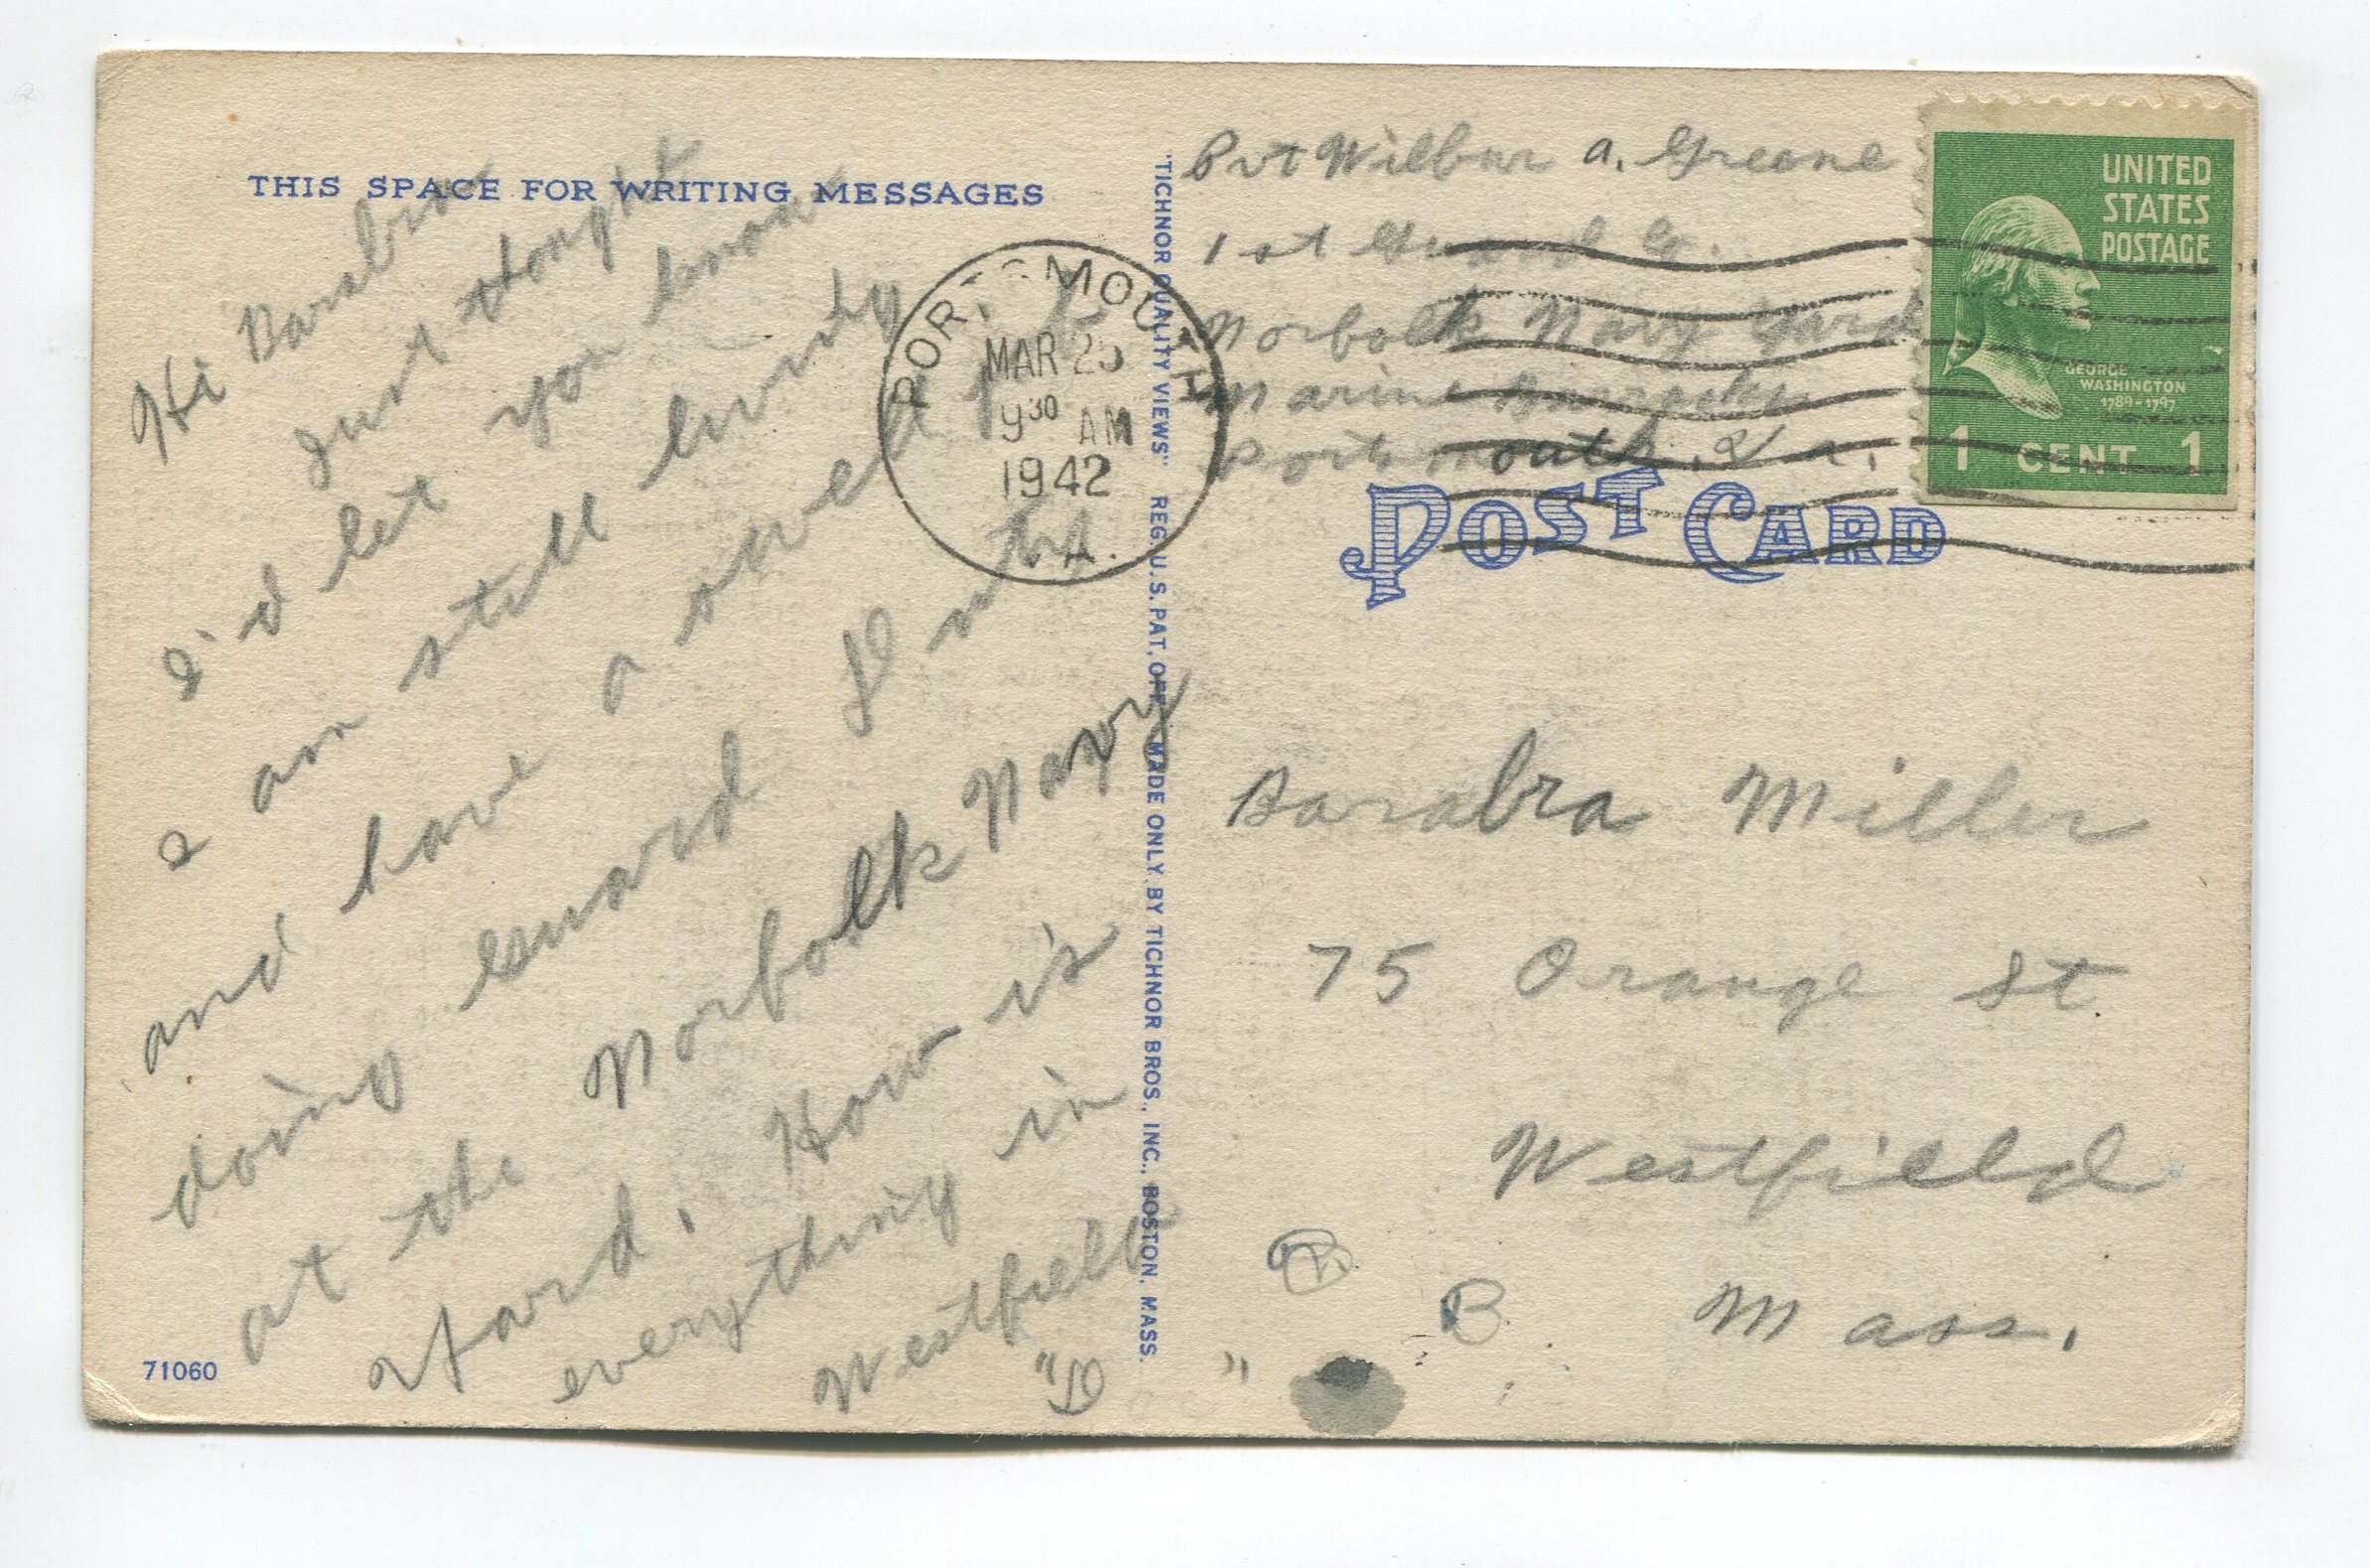 THIS SPACE FOR WRITING MESSAGES
Hi Barabra
Just thought
I'd let you know
I am still living
and have a swell job
doing guard duty
at the Norfolk Navy
Yard. How is
everything in
Westfield
71060
PORTSMOUTH
MAR 25
9 30 AM
1942
VA.
"TICHNOR QUALITY VIEWS" REG. U.S. PAT. OFF. MADE ONLY BY TICHNOR BROS., INC., BOSTON, MASS.
Pvt Wilbur A. Greene
1st Guard Co.
Norfolk Navy Yard
Marine Barracks
Portsmouth, Va.
UNITED
STATES
POSTAGE
GEORGE
WASHINGTON
1789-1797
1 CENT 1
POST CARD
Barabra Miller
75 Orange St
Westfield
B Mass.